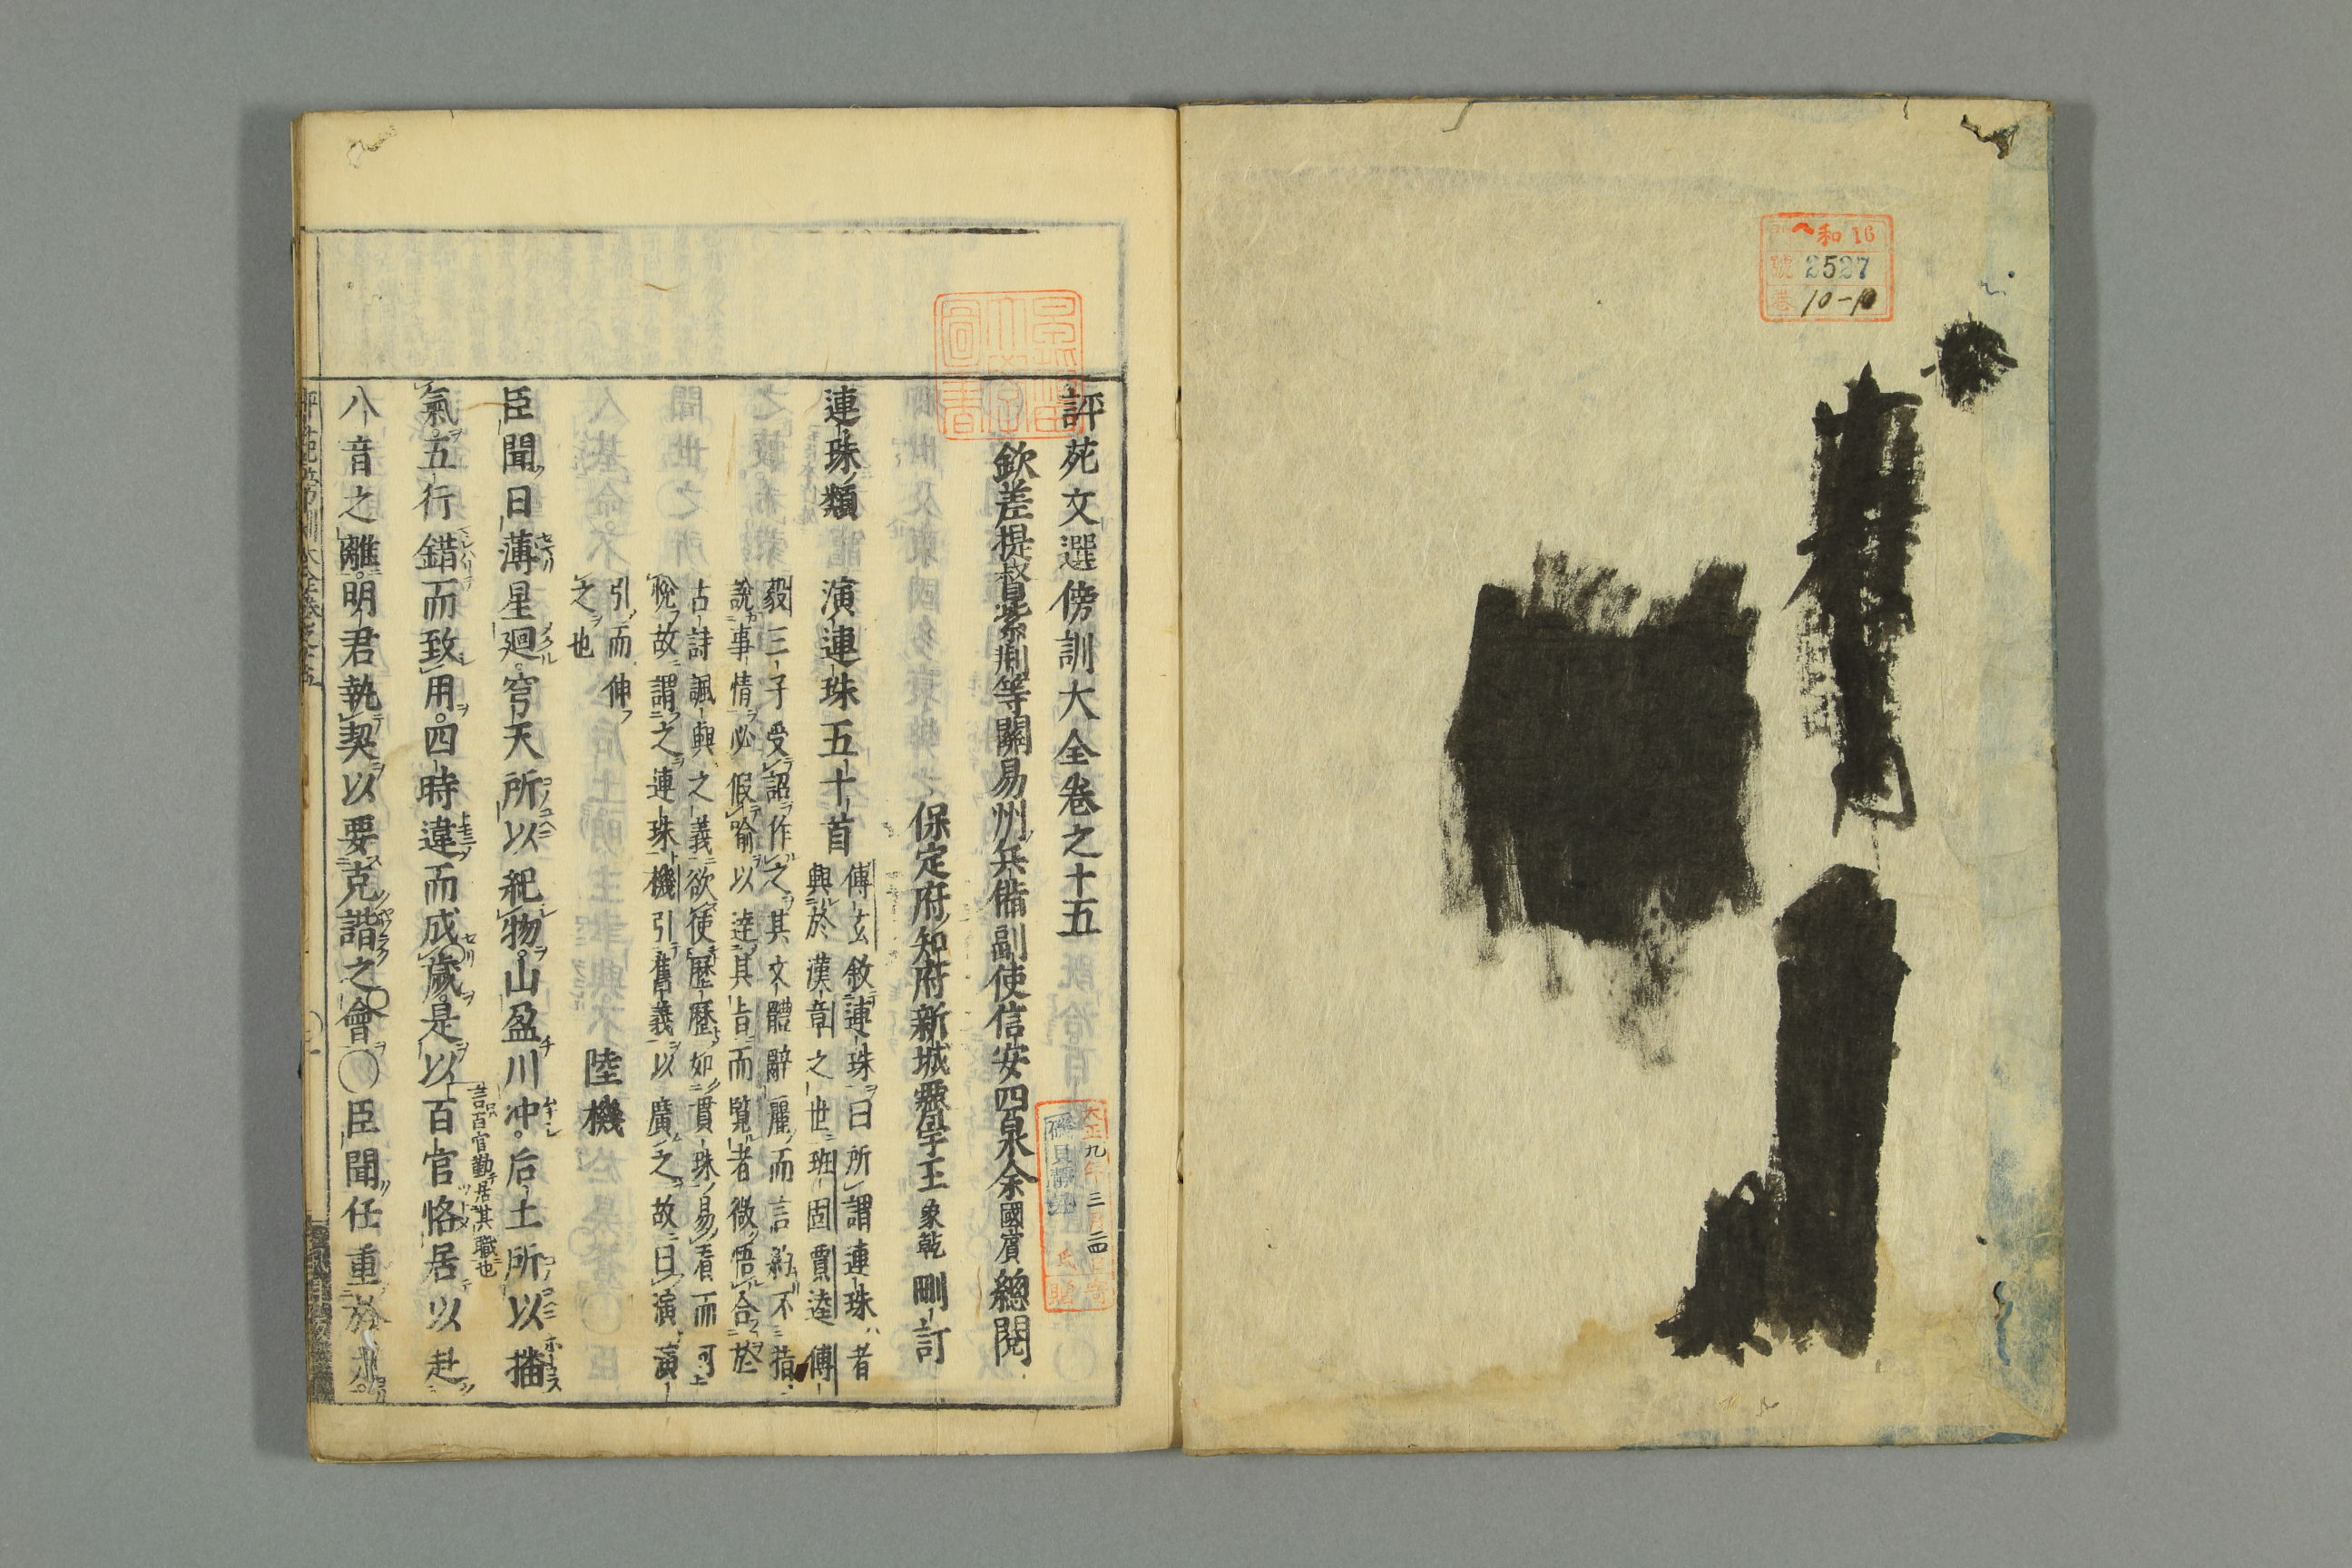 和 16
號 2527
巻 10-10
評苑文選傍訓大全卷之十五
欽差提督紫荊等關易州兵備副使信安四泉余國賓總閱
保定府知府新城霽宇王象乾刪訂
連珠類 演連珠五十首
傅玄敘連珠曰所謂連珠者
興於漢章之世班固賈逵傅
毅三子受詔作之其文體辭麗而言約不指
說事情必假喻以達其旨而覽者微悟合於
古詩諷興之義欲使歷歷如貫珠易看而可
悅故謂之連珠機引舊義以廣之故曰演演
引而伸
之也
陸機
臣聞日薄星廻穹天所以紀物山盈川冲后土所以播
氣五行錯而致用四時違而成歲是以百官恪居以赴
言百官勤居其職也
八音之離明君執契以要克諧之會〇臣聞任重於力
大正九年三月二四日寄
磯貝靜
氏贈